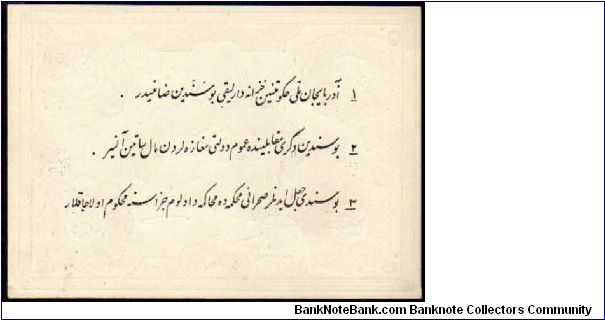 ۱ آذربایجان ملی حکومتینین خزانه داریلیقی بوسندین ضامنیدر .
۲ بوسندین دگری مقابلینده عموم دولتی مغازه لردن مال ساتین آلنیر .
۳ بوسندی جعل ایدنلر صحرائی محکمه ده محاکمه و اولوم جزاسنه محکوم اولاجاقلار
BankNoteBank.com Banknote Collectors Community